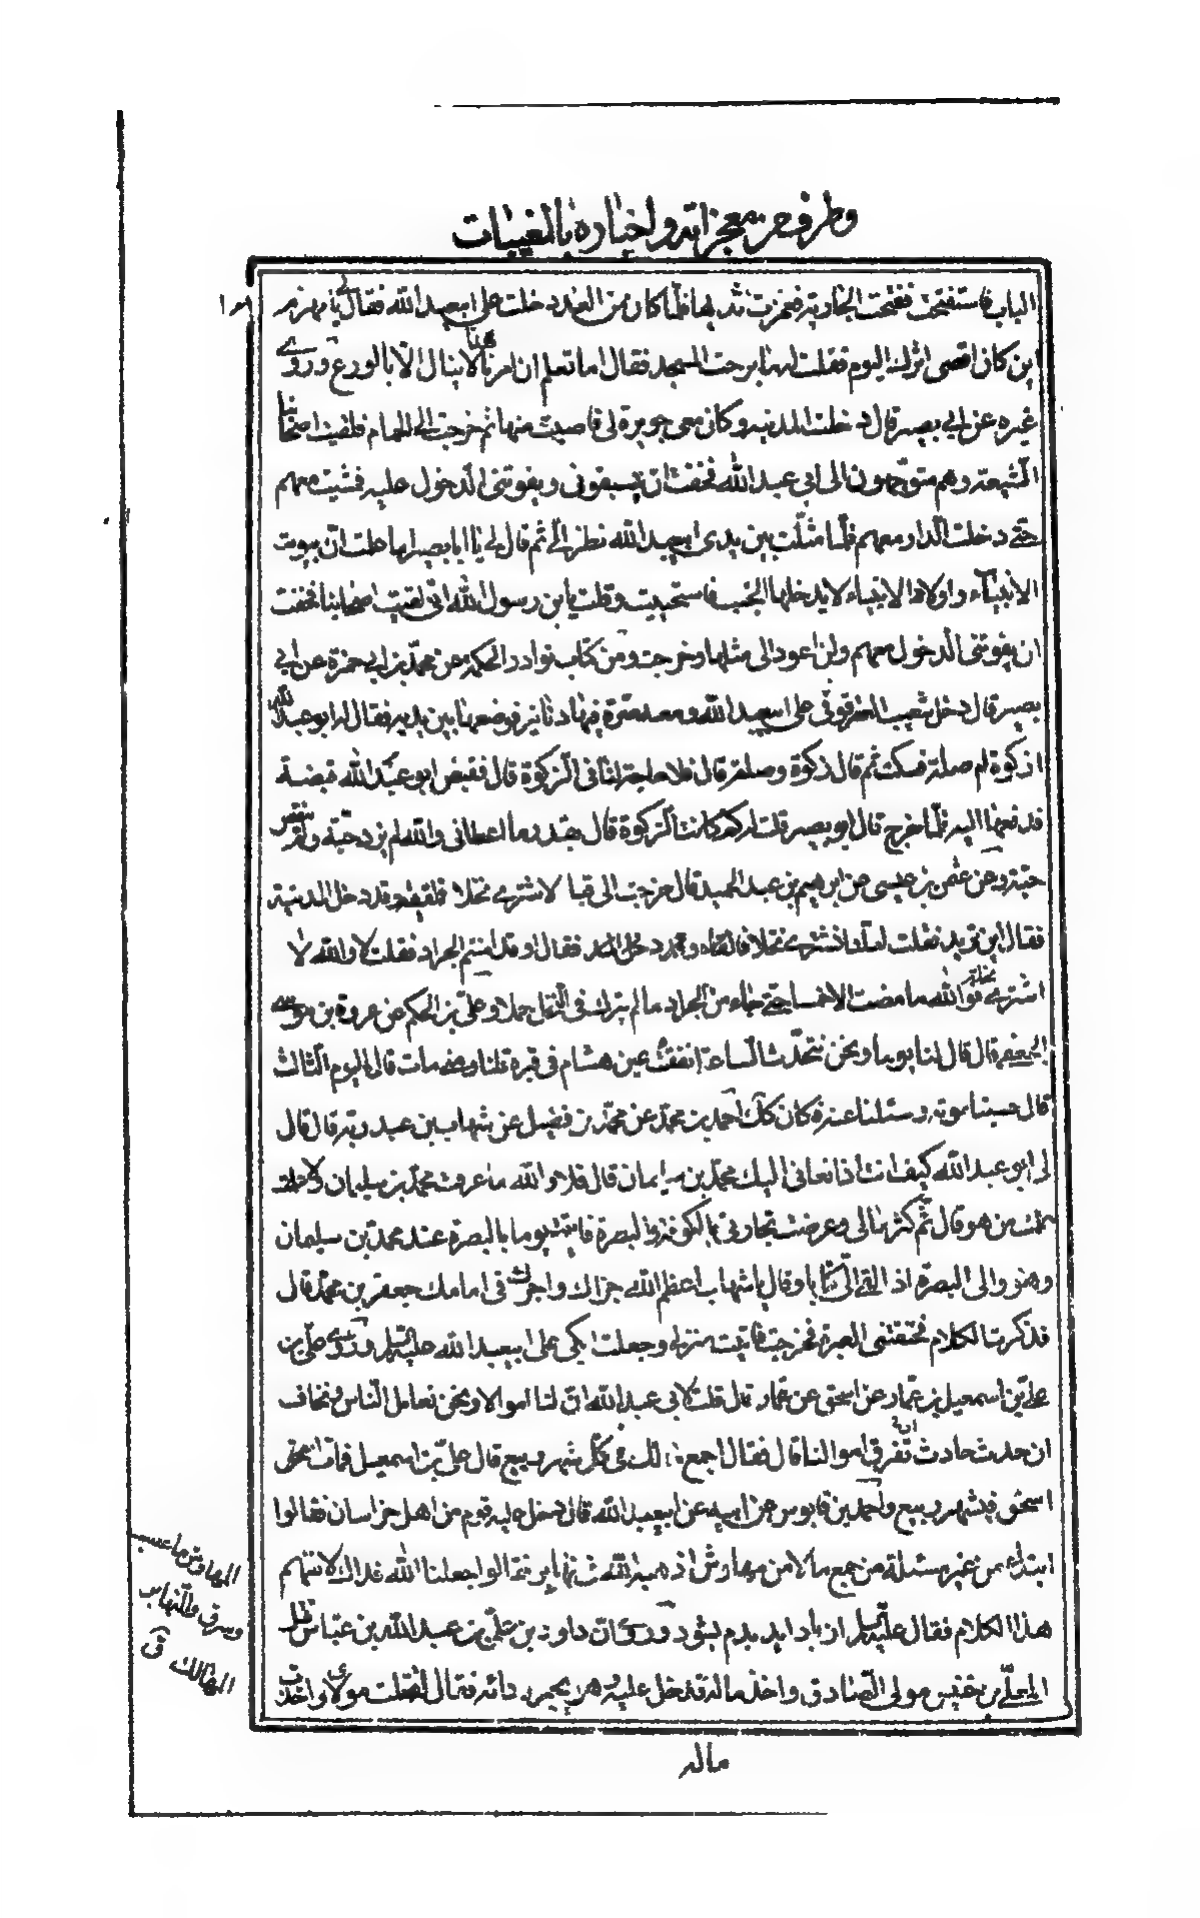 وطرف من معجزاته واخباره بالمغيبات
الباب فاستفتحت ففتحت الجارية فغمزت ثديها فلما كان من الغد دخلت على ابيعبد الله فقال لي يا مهزم
اين كان اقصى اثرك اليوم فقلت له ما برحت المسجد فقال اما تعلم ان امرنا هذا لا ينال الا بالورع وروى
غيره عن ابي بصير قال دخلت المدينة وكان معي جويرة لي فاصبت منها ثم خرجت الى الحمام فلقيت اصحابنا
الشيعة وهم متوجهون الى ابي عبد الله فخفت ان يسبقوني ويفوتني الدخول عليه فمشيت معهم
حتى دخلت الدار معهم فلما مثلت بين يدي ابيعبد الله نظر الي ثم قال لي يا ابا بصير اما علمت ان بيوت
الانبياء واولاد الانبياء لا يدخلها الجنب فاستحييت وقلت يابن رسول الله اني لقيت اصحابنا فخفت
ان يفوتني الدخول معهم ولن اعود الى مثلها وخرجت ومن كتاب نوادر الحكمة عن محمد بن ابي حمزة عن ابي
بصير قال دخل شعيب العقرقوفي على ابيعبد الله ومعه صرة فيها دنانير فوضعها بين يديه فقال له ابو عبد الله
ازكوة ام صلة فسكت ثم قال زكوة وصلة قال فلا حاجة لنا في الزكوة قال فقبض ابو عبد الله قبضة
فدفعها اليه فلما خرج قال ابو بصير قلت له كم كانت الزكوة قال بقدر ما اعطاني والله لم يزد حبة ولم ينقص
حبة وعن عثمن بن عيسى عن ابرهيم بن عبد الحميد قال خرجت الى قبا لاشترى نخلا فلقيته وقد دخل المدينة
فقال اين تريد فقلت لعلنا نشتري نخلا فقال او قد امنتم الجراد فقلت لا والله لا
اشتري نخلة فوالله ما مضت الا خمسا حتى جاء من الجراد ما لم يترك في النخل حملا وعلي بن الحكم عن عروة بن موسى
الجعفي قال قال لنا يوما ونحن نتحدث الساعة انفقئت عين هشام في قبره قلنا ومتى مات قال اليوم الثالث
قال حسبنا موته وسئلنا عنه فكان كك احمد بن محمد عن محمد بن فضيل عن شهاب بن عبد ربه قال قال
لي ابو عبد الله كيف انت اذا نعاني اليك محمد بن سليمان قال فلا والله ما عرفت محمد بن سليمان ولا علمت
من هو قال ثم كثر مالي وعرضت تجارتي بالكوفة والبصرة فاني يوما بالبصرة عند محمد بن سليمان
وهو والي البصرة اذ القى الي كتابا وقال يا شهاب اعظم الله جزاك واجرك في امامك جعفر بن محمد قال
فذكرت الكلام فخنقتني العبرة فخرجت فاتيت منزلي وجعلت ابكي على ابيعبد الله عليه السلم وروى علي بن
علي بن اسمعيل بن عمار عن اسحق عن عمار قال قلت لابي عبد الله ان لنا اموالا ونحن نعامل الناس ونخاف
ان حدث حادث ان تفرق اموالنا قال فقال اجمع مالك في كل شهر ربيع قال علي بن اسمعيل فمات اسحق
اسحق في شهر ربيع واحمد بن قابوس عن ابيه عن ابيعبد الله قال دخل عليه قوم من اهل خراسان فقالوا
ابتداء من غير مسئلة من جمع مالا من مهاوش اذهبه الله في نهابر فقالوا جعلنا الله فداك لا نفهم
هذا الكلام فقال عليه السلم از باد ايد بدم بشود وروى ان داود بن علي بن عبد الله بن عباس قتل
المعلى بن خنيس مولى الصادق واخذ ماله فدخل عليه وهو يجر ردائه فقال له قتلت مولاي واخذت
ماله
المهاوش ما غصب
وسرق والنهابر
المهالك ق